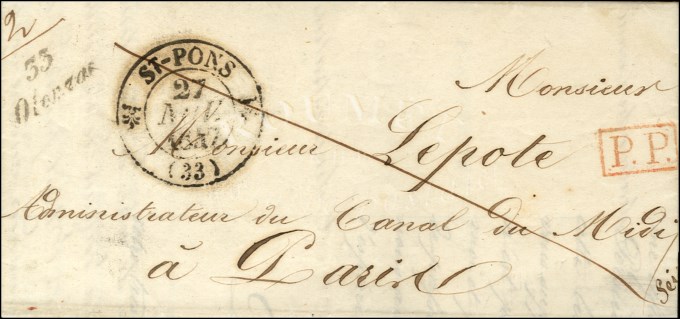 2
33
Olonzac
ST-PONS
27
(33)
Monsieur
Monsieur Lepote
P.P.
Administrateur du Canal du Midi
à Paris